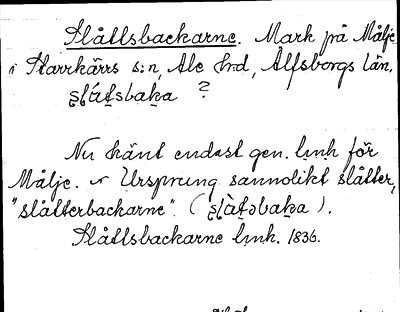 Slåttsbackarne. Mark på Målje
i Starrkärrs s:n, Ale hrd, Älfsborgs län.
s̯l̯átsbaka ?
Nu känt endast gen. lmh för
Målje. Ursprung sannolikt slåtter,
"slåtterbackarne". (s̯l̯àtsbaka).
Slåttsbackarne lmh. 1836.